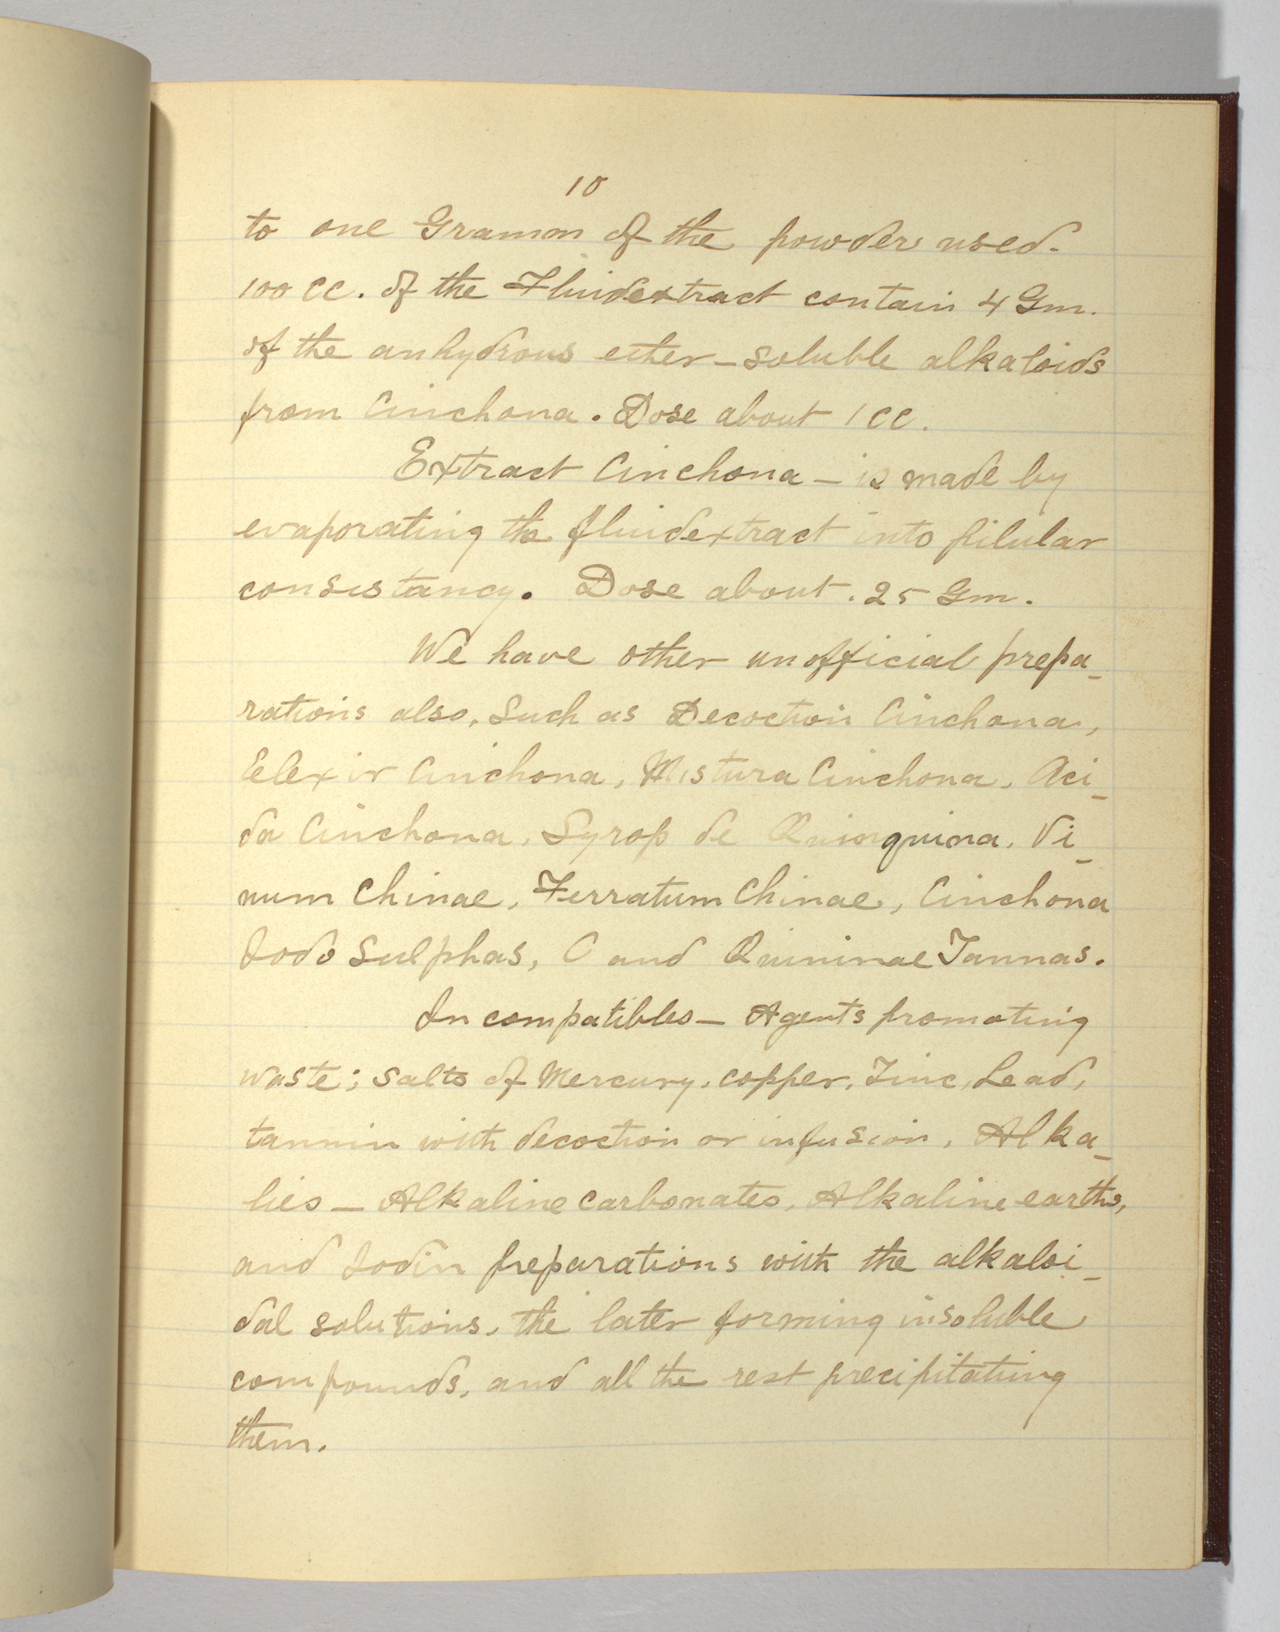 10
to one Gramm of the powder used.
100 cc. of the Fluidextract contain 4 Gm.
of the anhydrous ether-soluble alkaloids
from Cinchona. Dose about 1 cc.
Extract Cinchona - is made by
evaporating the fluidextract into pilular
consistancy. Dose about .25 Gm.
We have other unofficial prepa-
rations also, Such as Decoction Cinchona,
Elexir Cinchona, Mistura Cinchona, Aci-
da Cinchona, Syrop de Quinquina, Vi-
num Chinae, Ferratum Chinae, Cinchona
Iodo Sulphas, C and Quininae Tannas.
Incompatibles - Agents promoting
waste; Salts of Mercury, copper, Zinc, Lead,
tannin with decoction or infusion, Alka-
lies - Alkaline carbonates, Alkaline earths,
and Iodin preparations with the alkaloi-
dal solutions, the later forming insoluble
compounds, and all the rest precipitating
them.